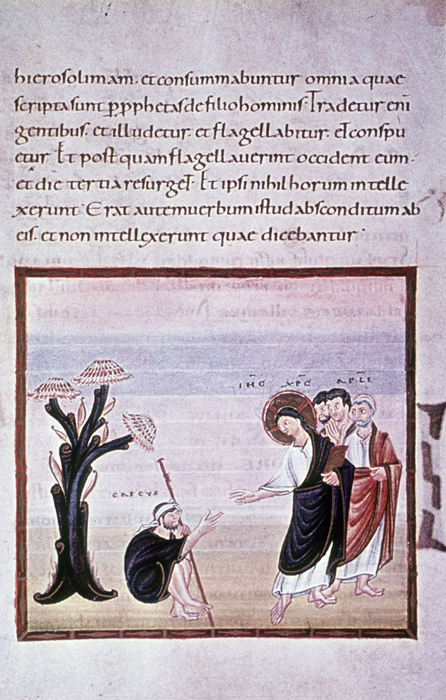 hierosolimam. et consummabuntur omnia quae
scripta sunt p pphetas de filio hominis. Tradetur eni
gentibus. et illudetur. et flagellabitur. et conspu
etur Et post quam flagellaverint occident eum.
et die tertia resurget. Et ipsi nihil horum intelle
xerunt. Erat autem uerbum istud absconditum ab
eis. et non intellegerunt quae dicebantur.
IHC XPC APLI
CAECVS